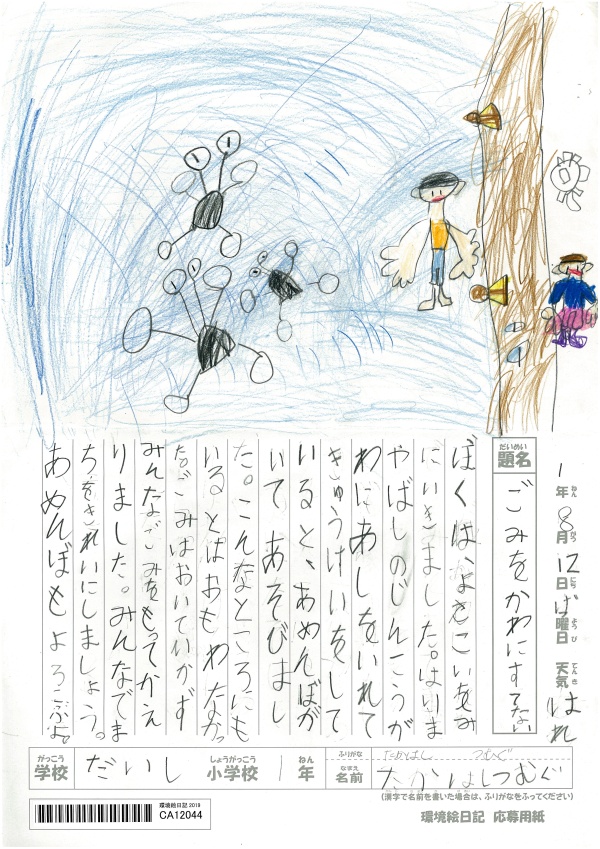 1年8月12日げ曜日 天気はれ
ねん がつ にち ようび てんき
だいめい
題名
ごみをかわにすてない
ぼくは、よさこいをみ
にいきました。はりま
やばしのじんこうが
わにあしをいれて
きゅうけいをして
いると、あめんぼが
いてあそびまし
た。こんなところにも
いるとはおもわなかっ
た。ごみはおいていかず
みんなごみをもってかえ
りました。みんなでま
ちをきれいにしましょう。
あめんぼもよろこぶよ。
がっこう
学校
だいし
しょうがっこう
小学校
1
ねん
年
ふりがな
たかはし つむぐ
なまえ
名前
たかはしつむぐ
(漢字で名前を書いた場合は、ふりがなをふってください)
環境絵日記 2019
CA12044
環境絵日記 応募用紙